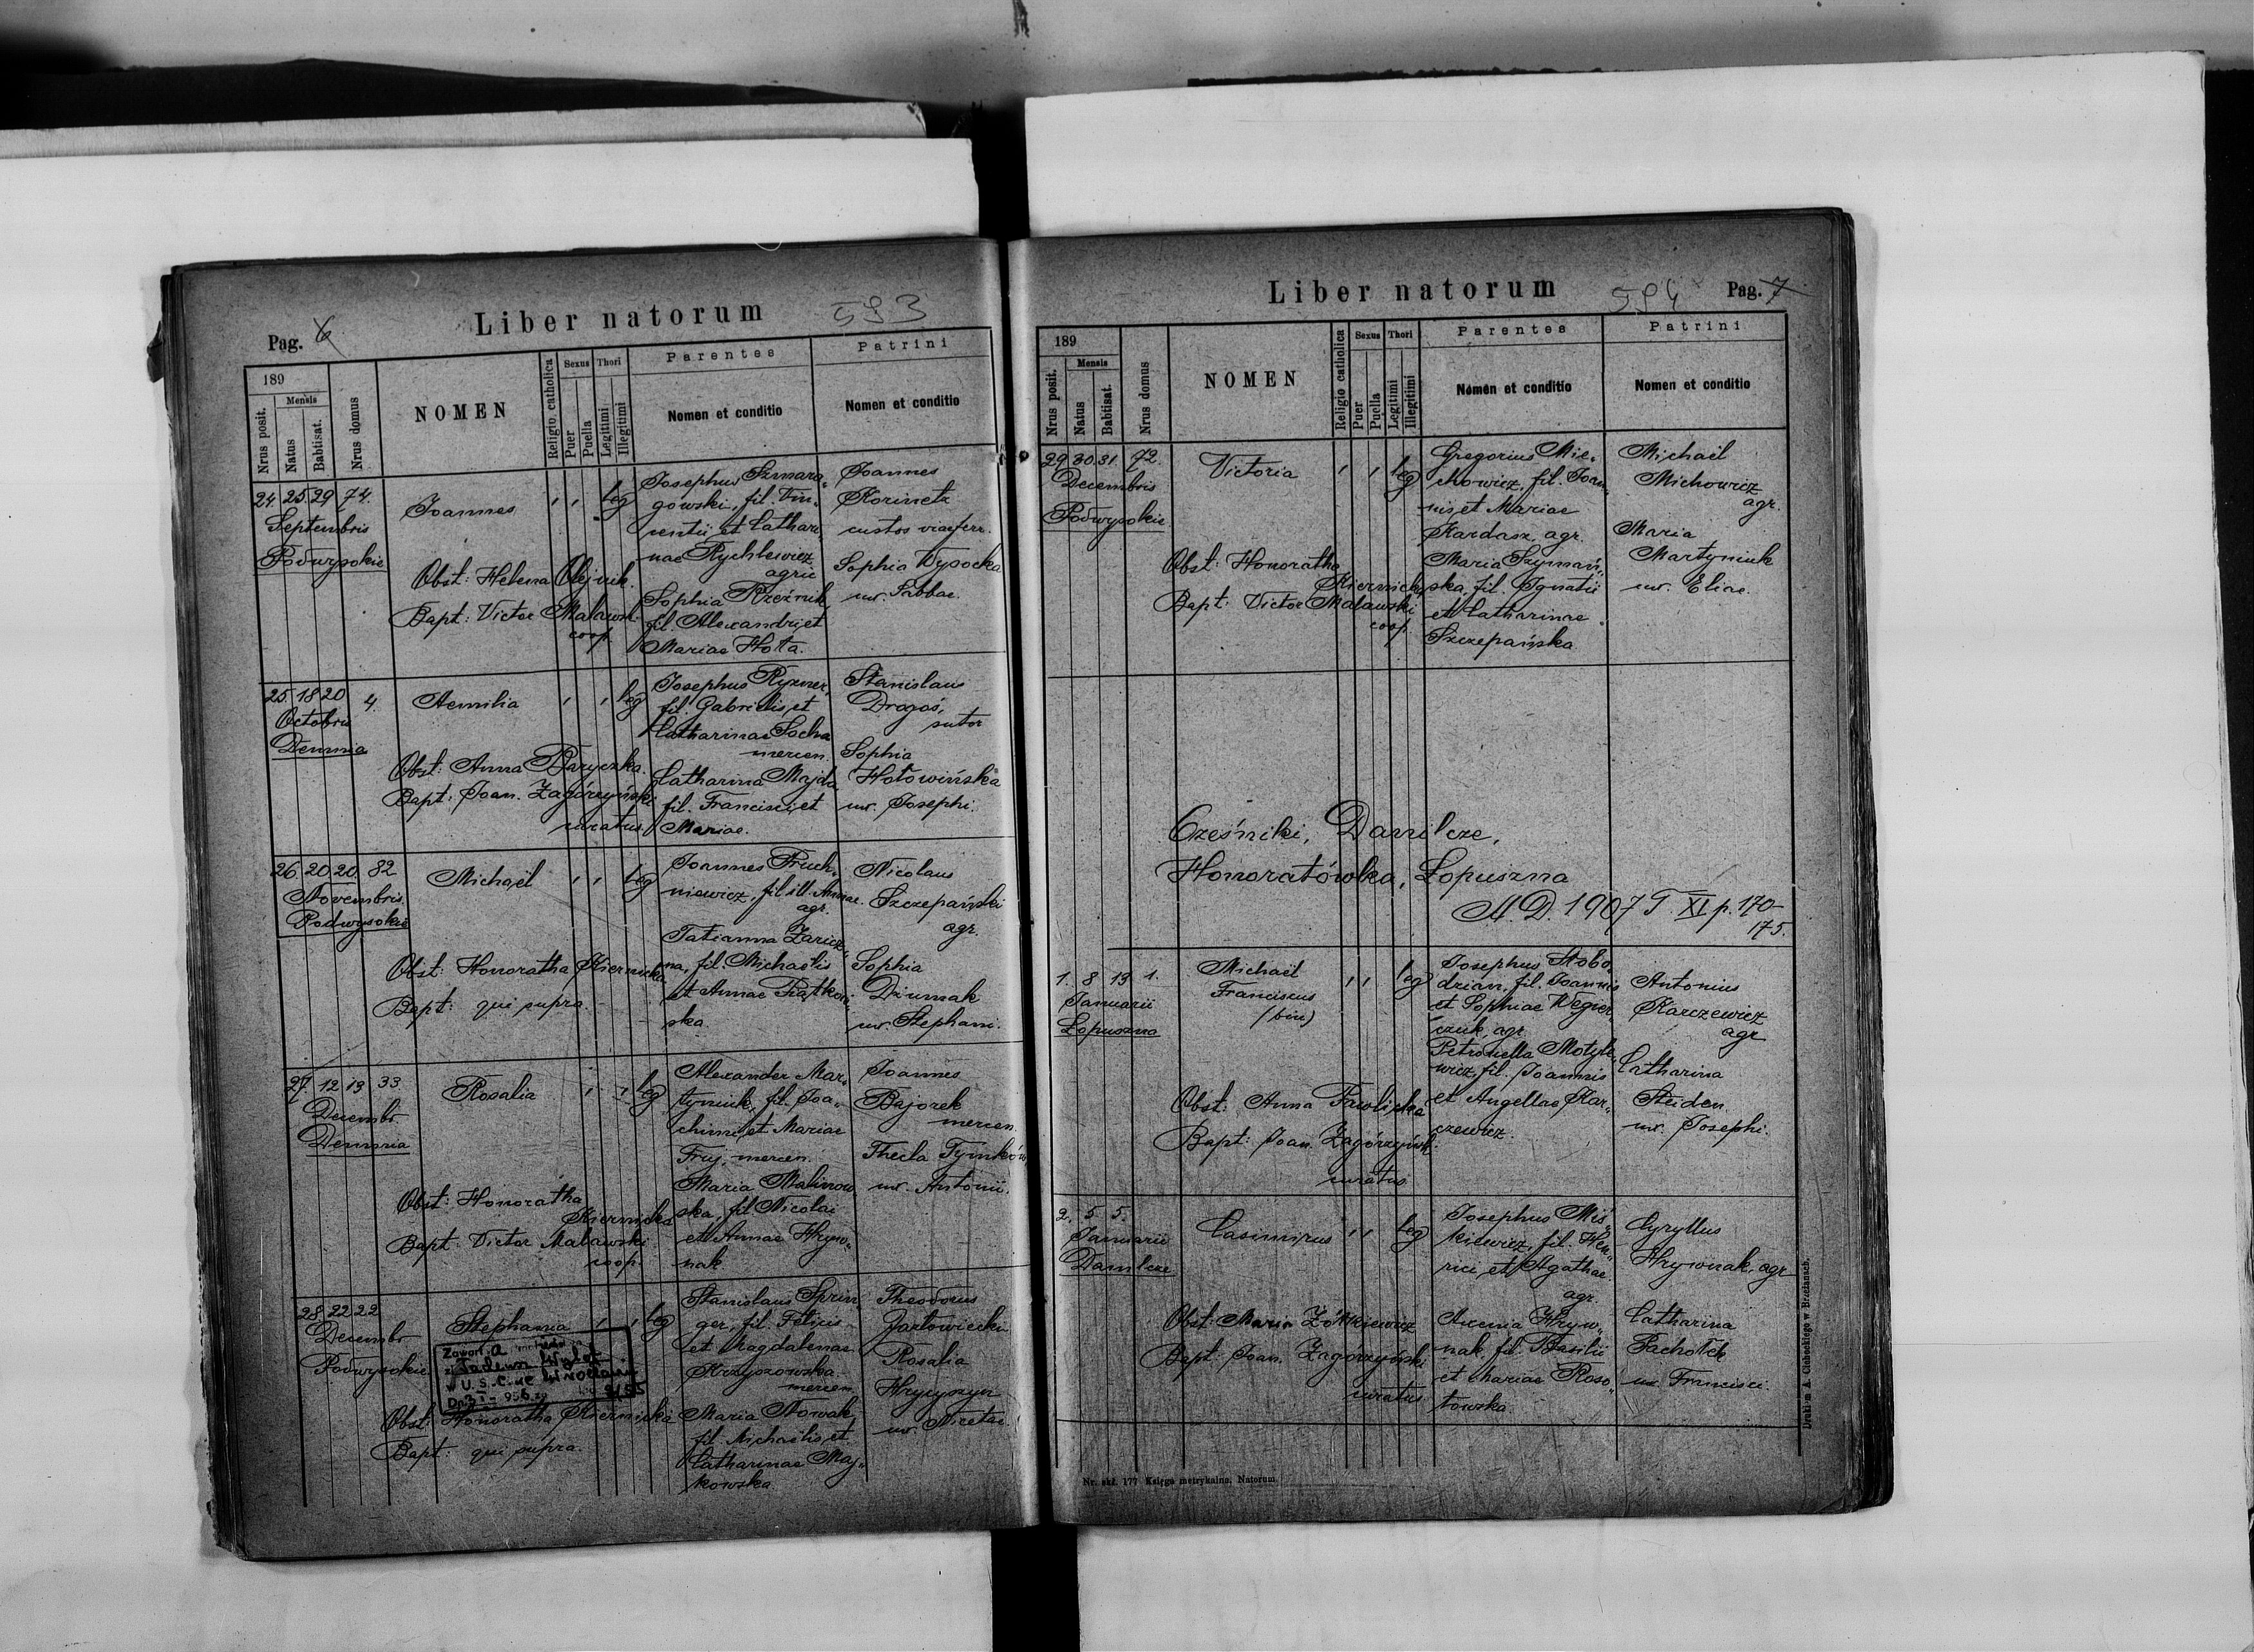 Pag. 6
Liber natorum
593
189
Mensis
Nrus posit.
Natus
Babtisat.
Nrus domus
NOMEN
Religio catholica
Sexus
Puer
Puella
Thori
Legitimi
Illegitimi
Parentes
Nomen et conditio
Patrini
Nomen et conditio
24. 25 29 74.
Septembris
Podwysokie
Joannes
leg
Obst: Helena Olejnik.
Bapt: Victor Malawski
coop.
Josephus Szmara„
gowski, fil. Vin„
centii et Cathari
nae Rychlewicz
agric
Sophia Rzeźnik,
fil. Alexandri et
Mariae Hota.
Joannes
Korinetz
custos viae ferr.
Sophia Wysocka
ux. Sabbae.
25. 18 20 4.
Octobris
Demnia
Aemilia
leg
Obst: Anna Baryczka.
Bapt: Joan. Zagórzyński
curatus.
Josephus Ryzner,
fil. Gabrielis et
Catharinae Socha
mercen.
Catharina Majda
fil. Francisci et
Mariae.
Stanislaus
Dragoś,
sutor
Sophia
Hołowińska
ux. Josephi.
26. 20 20. 82
Novembris.
Podwysokie
Michaël
leg
Obst: Honoratha Kiernicka
Bapt: qui supra.
Joannes Pruch„
niewicz, fil. ill. Annae.
agr.
Tatianna Zaricz„
na, fil. Michaëlis
et Annae Piątkow„
ska
Nicolaus
Szczepański
agr.
Sophia
Dziumak
ux. Stephani.
27. 12 13 33
Decembr
Demnia
Rosalia
leg
Obst: Honoratha
Kiernicka
Bapt: Victor Malawski
coop.
Alexander Mar„
tyniuk, fil. Joa„
chimi et Mariae
Fruj, mercen.
Maria Malinow
ska, fil. Nicolai
et Annae Hryw„
nak
Joannes
Bajorek
mercen.
Thecla Tymków
ux. Antonii.
28. 22 22
Decembr
Podwysokie
Stephania
leg
Zawarł.a
Tadeum
U.S.C.
Obst: Honoratha Kiernicka
Bapt: qui supra.
Stanislaus Sprin„
ger, fil. Felicis
et Magdalenae
Krzyszowska.
mercen.
Maria Nowak,
fil. Michaëlis et
Catharinae Maj„
kowska.
Theodorus
Jarłowiecki
Rosalia
Hrycyszyn
ux. Nicetae.
Liber natorum
594
Pag. 7
189
Mensis
Nrus posit.
Natus
Babtisat.
Nrus domus
NOMEN
Religio catholica
Sexus
Puer
Puella
Thori
Legitimi
Illegitimi
Parentes
Nomen et conditio
Patrini
Nomen et conditio
29 30. 31. 72.
Decembris
Podwysokie
Victoria
leg
Obst: Honoratha
Kiernicka
Bapt: Victor Malawski
coop.
Gregorius Mie„
chowicz, fil. Joan„
nis et Mariae
Kardasz, agr.
Maria Szymań„
ska, fil. Ignatii
et Catharinae
Szczepańska
Michaël
Michowicz
agr.
Maria
Martyniuk
ux. Eliae.
Cześniki, Danilcze,
Honoratówka, Łopuszna
A.D. 1907 T. XI p. 170-
175.
1. 8 13 1.
Januarii
Łopuszna
Michaël
Franciscus
(bin)
leg
Obst: Anna Pawlicka
Bapt: Joan. Zagórzyński.
curatus
Josephus Słobo„
dzian, fil. Joannis
et Sophiae Węgier„
czuk, agr.
Petronella Motyle„
wicz, fil. Joannis
et Angellae Kar„
czewicz.
Antonius
Karczewicz
agr
Catharina
Steiden
ux. Josephi.
2. 5 5.
Januarii
Danilcze
Casimirus
leg
Obst: Maria Żółkiewicz
Bapt: Joan. Zagórzyński
curatus
Josephus Miś„
kiewicz, fil. Hen„
rici et Agathae.
agr.
Axenia Hryw„
nak, fil. Basilii
et Mariae Koso„
towska.
Cyryllus
Hrywnak, agr
Catharina
Pachołek
ux. Francisci.
Nr. skł. 177 Księga metrykalna. Natorum.